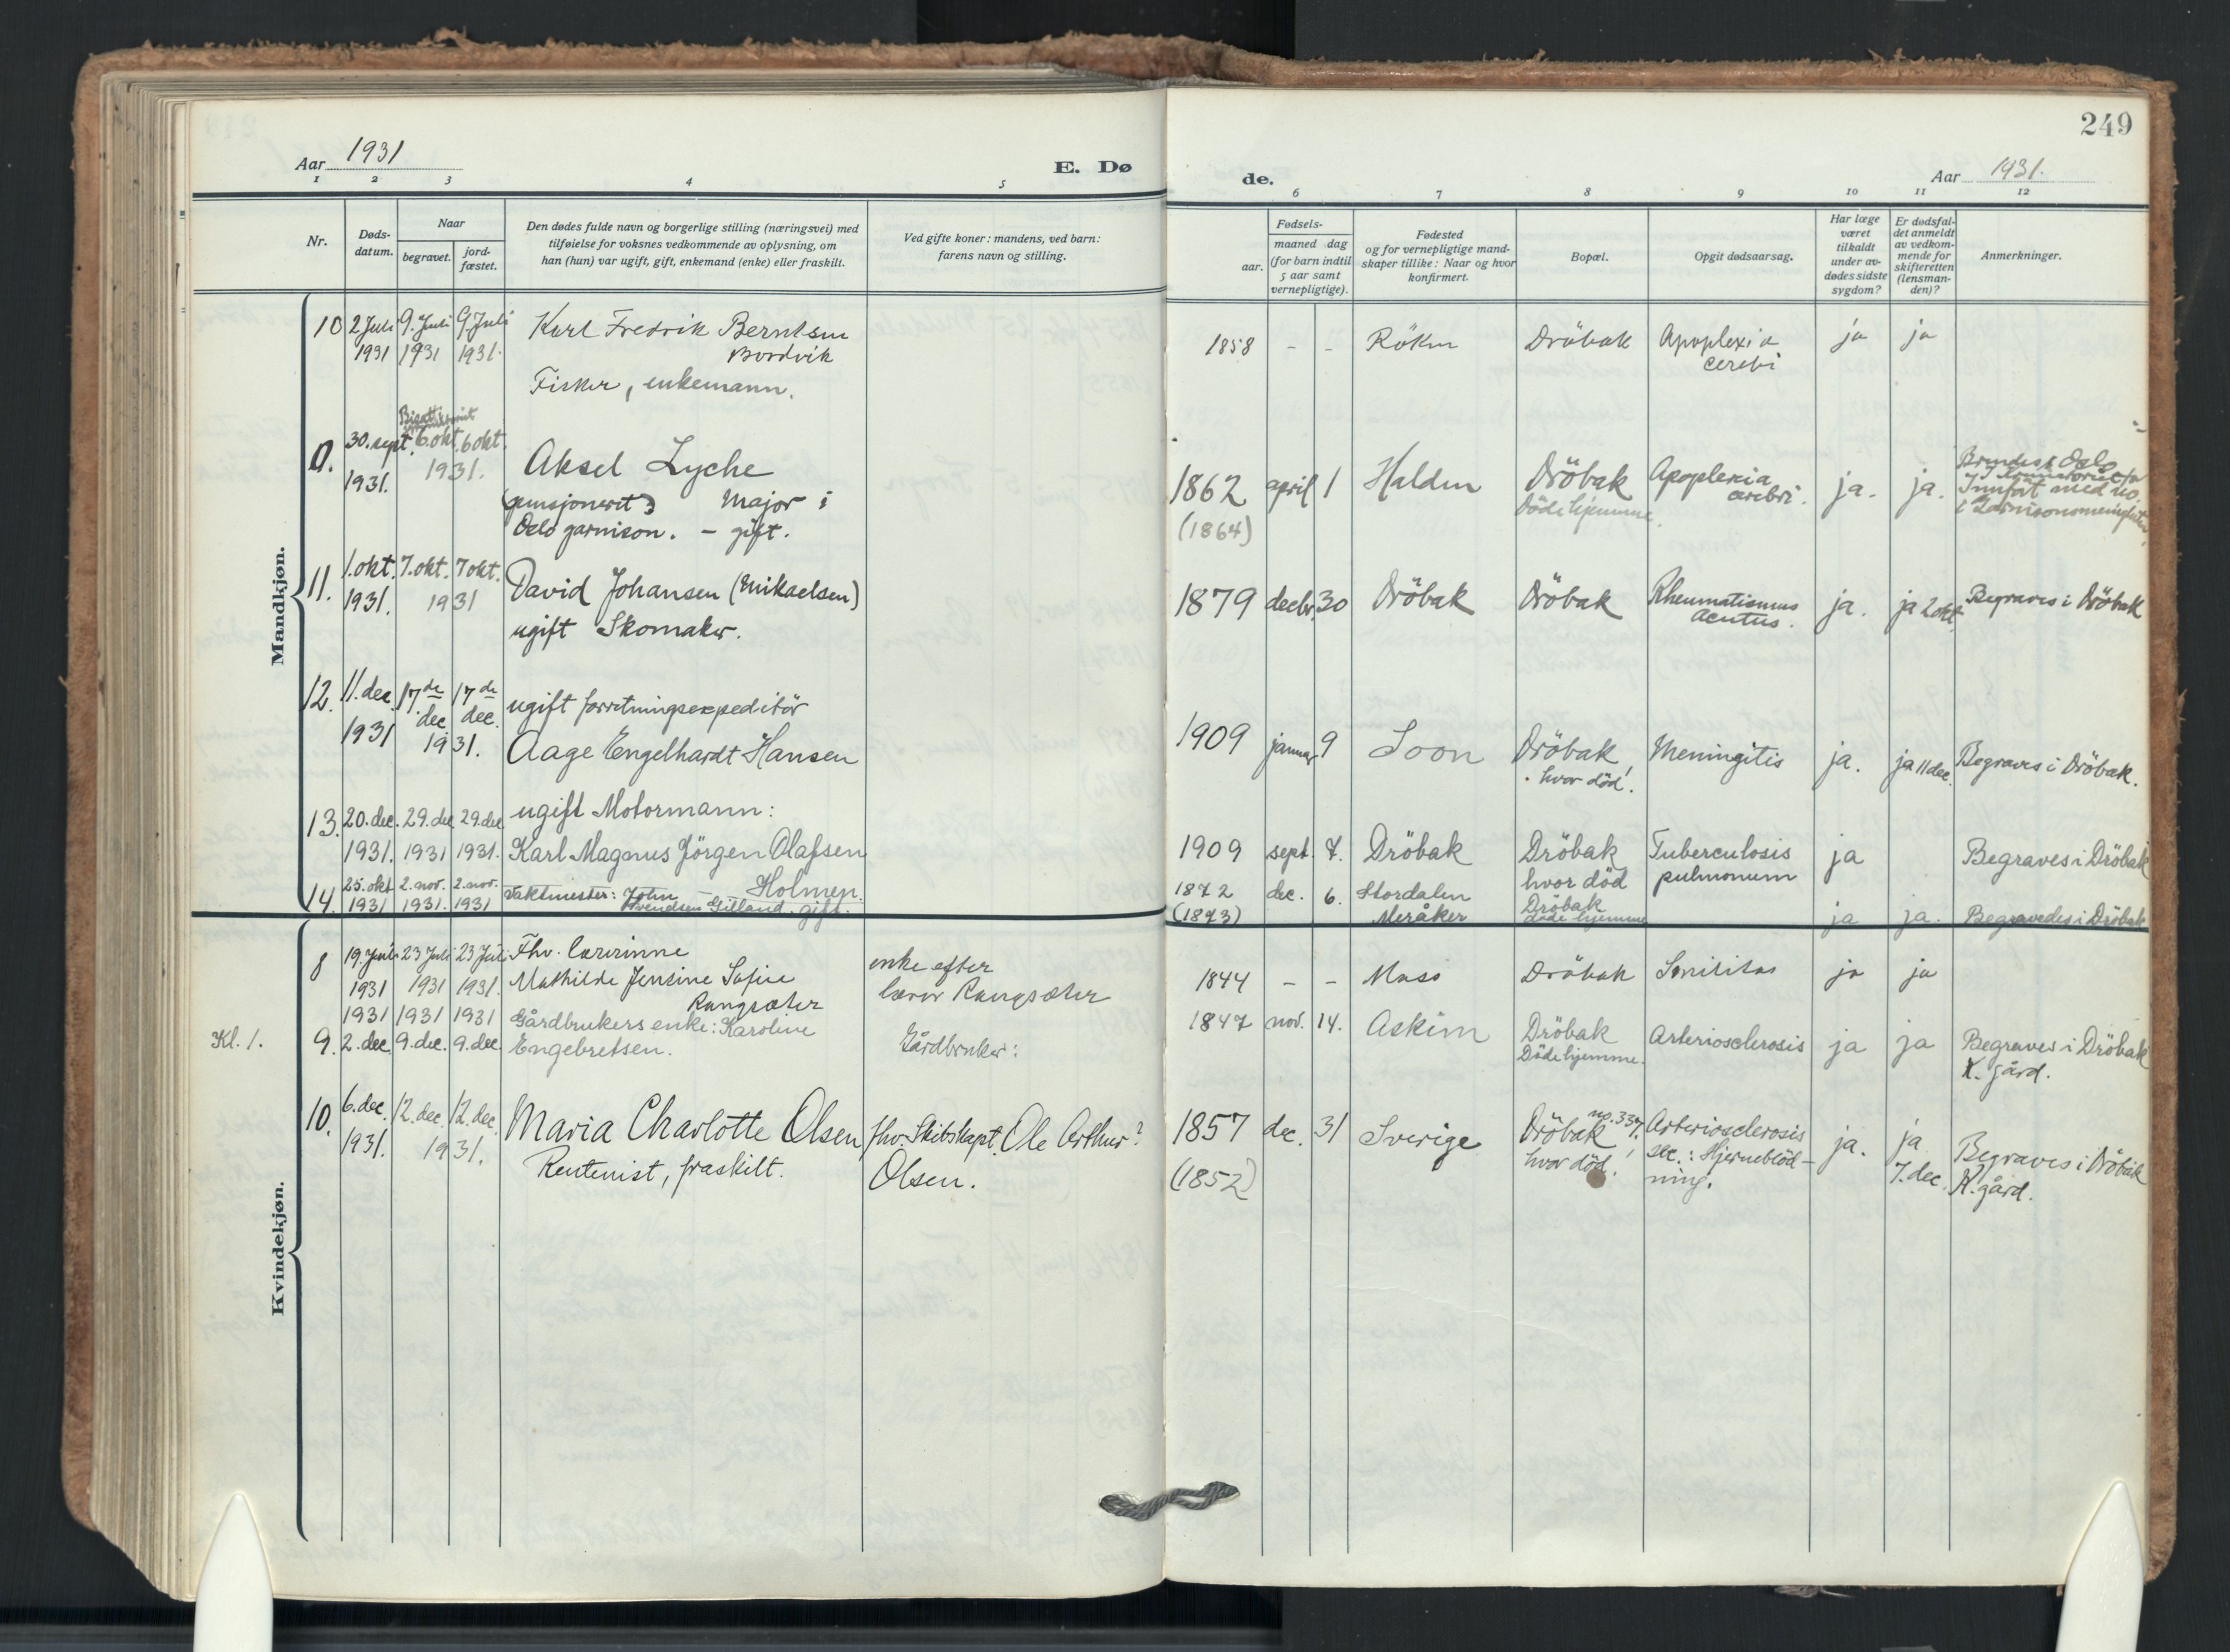 249
Aar 1931
E. Dø
de.
Aar 1931.
1 2 3 4 5 6 7 8 9 10 11 12
Nr.
Døds-
datum.
Naar
begravet.
jord-
fæstet.
Den dødes fulde navn og borgerlige stilling (næringsvei) med
tilføielse for voksnes vedkommende av oplysning, om
han (hun) var ugift, gift, enkemand (enke) eller fraskilt.
Ved gifte koner: mandens, ved barn:
farens navn og stilling.
Fødsels-
aar.
maaned dag
(for barn indtil
5 aar samt
vernepligtige).
Fødested
og for vernepligtige mand-
skaper tillike: Naar og hvor
konfirmert.
Bopæl.
Opgit dødsaarsag.
Har læge
været
tilkaldt
under av-
dødes sidste
sygdom?
Er dødsfal-
det anmeldt
av vedkom-
mende for
skifteretten
(lensman-
den)?
Anmerkninger.
Mandkjøn.
10 2 Juli 9. Juli 9 Juli Karl Fredrik Berntsen
1931 1931 1931. Bordvik
Fisker, enkemann.
1858 - - Röken Dröbak Apoplexia
cerebi
ja ja
30. sept. 6. okt. 6 okt. Aksel Lyche
1931. 1931.
(pensjonert) Major i
Oslo garnison. - gift.
1862 april 1 Halden Dröbak Apoplexia
cerebri.
(1864) Död i hjemme.
ja. ja.
Innført med no.
11. 1. okt. 7. okt. 7 okt. David Johansen (Mikaelsen)
1931. 1931 ugift Skomaker.
1879 decbr. 30 Dröbak Dröbak Rheumatismus
acutus.
ja. ja 2 okt. Begraves i Dröbak
12. 11. dec. 17de 17de ugift forretningsexpeditör
dec. dec.
1931 1931. Aage Engelhardt Hansen
1909 januar 9 Soon Dröbak Meningitis
hvor död!
ja. ja 11 dec. Begraves i Dröbak.
13. 20. dec. 29. dec 29. dec ugift Motormann:
1931. 1931 1931. Karl Magnus Jörgen Olafsen
Holmen.
1909 sept. 7. Dröbak Dröbak Tuberculosis
hvor död pulmonum
ja Begraves i Dröbak
14. 25. okt 2. nov. 2. nov. Vaktmester: John
1931 1931. 1931 Svendsen Gilland. gift.
1872 dec. 6. Stordalen Dröbak
(1873) Meråker döde hjemme
ja ja. Begravedes i Dröbak
Kvindekjøn.
8 19. Juli 23 Juli 23 Juli Fhv. lærerinne
1931 1931 1931. Mathilde Jensine Sofie
Rangsæter
enke efter
lærer Rangsæter
1844 - - Moss Dröbak Senilitas ja ja
1931 1931 1931 Gårdbrukers enke: Karoline
Kl. 1. 9. 2. dec. 9. dec. 9. dec. Engebretsen.
Gårdbruker:
1847 nov. 14. Askim Dröbak Arteriosclerosis
Döde hjemme.
ja ja Begraves i Dröbak
K. gård.
10. 6. dec. 12. dec. 12 dec. Maria Charlotte Olsen
1931. 1931. Rentenist, fraskilt.
fhv. Skibskapt. Ole Arthur?
Olsen.
1857 dec. 31 Sverige Dröbak no. 337. Arteriosclerosis
(1852) hvor död! sec.: Hjerneblöd-
ning.
ja. ja
7. dec. Begraves i Dröbak
K. gård.